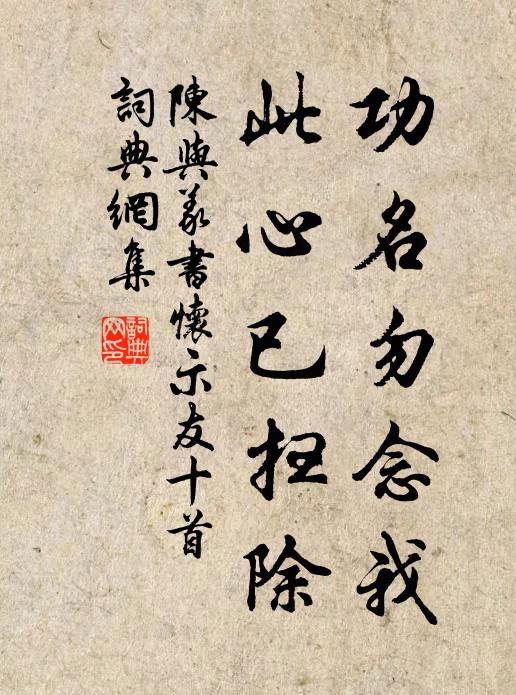 功名勿念我
此心已扫除
陳與義書懷示友十首
詞典網集
詞典網印